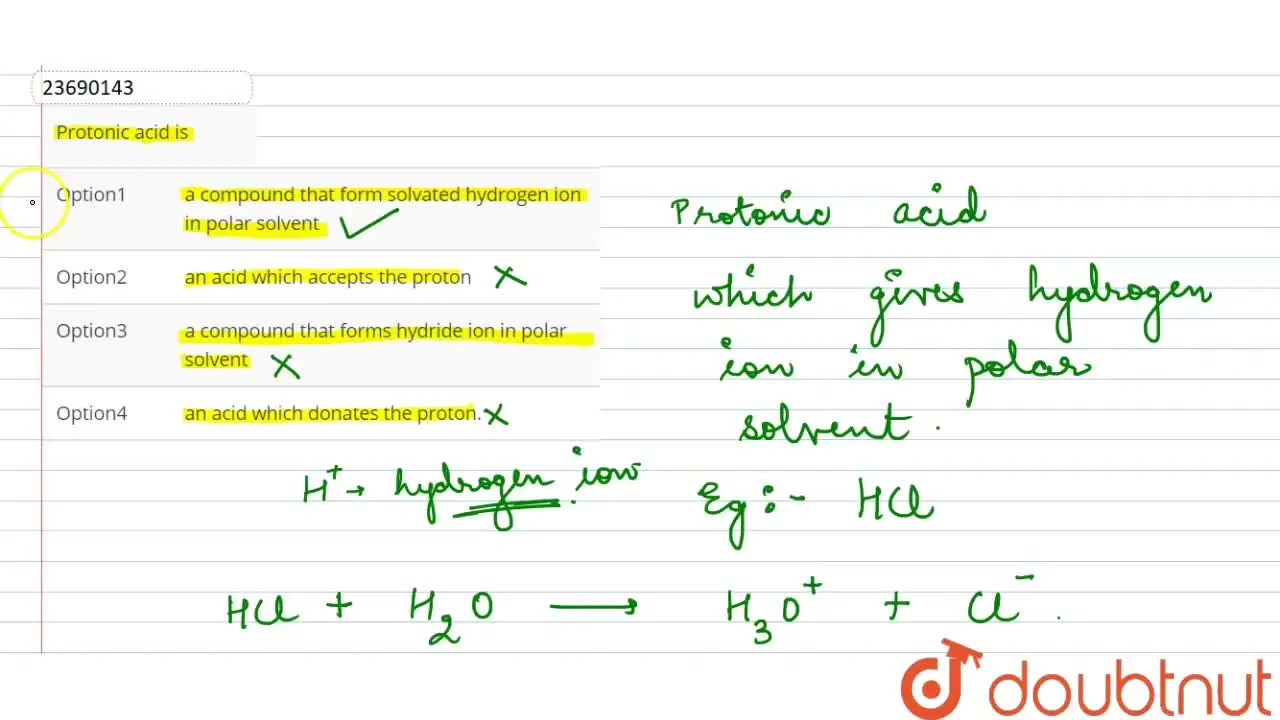 23690143
Protonic acid is
Option1 a compound that form solvated hydrogen ion
in polar solvent
Option2 an acid which accepts the proton
Option3 a compound that forms hydride ion in polar
solvent
Option4 an acid which donates the proton.
Protonic acid
which gives hydrogen
ion in polar
solvent.
H⁺ → hydrogen ion.
Eg :- HCl
HCl + H₂O ⟶ H₃O⁺ + Cl⁻.
doubtnut